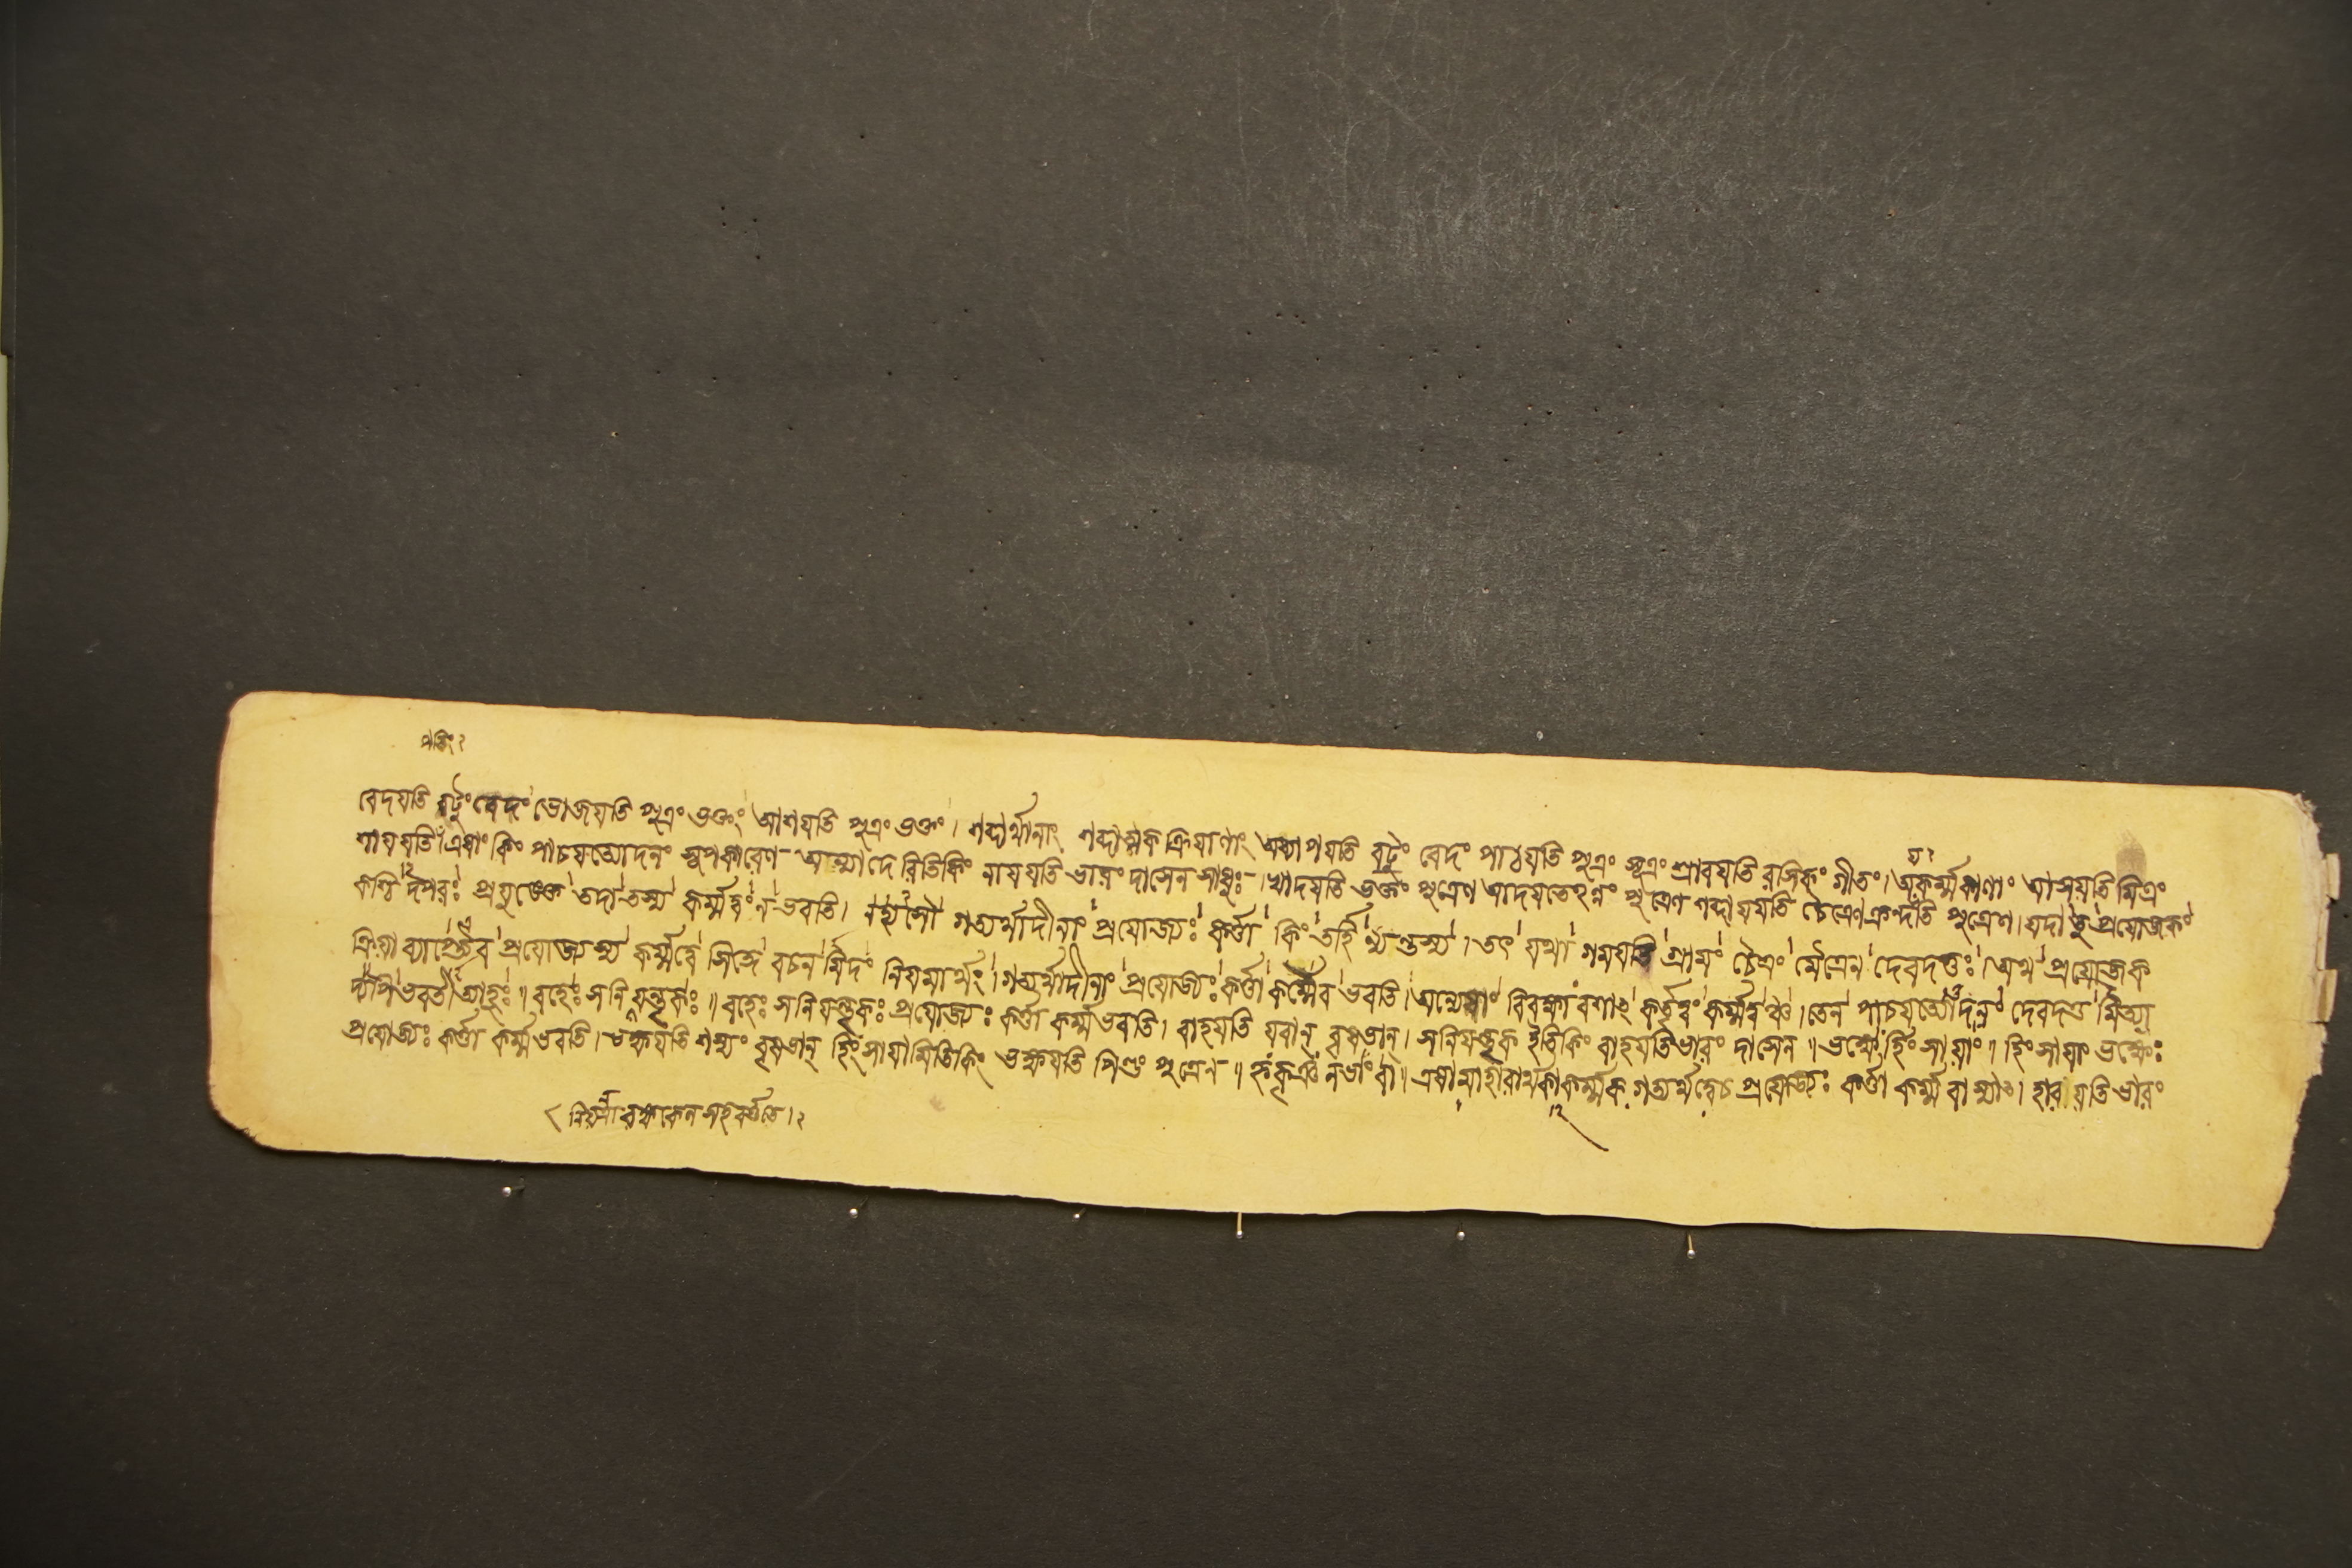 পতিং২
বেদযতি বটুং বেদং ভোজযতি পুত্রং ভক্তং আশযতি পুত্রং ভক্তং। শব্দার্থানাং শব্দাত্মক ক্রিযাণাং অধ্যাপযতি বটুং বেদং পাঠযতি পুত্রং সূত্রং শ্রাবযতি রসিকং গীতং। অকর্ম্মকাণাং আসয়তি মিত্রং
শাযযতি। এষাং কিং পাচযত্যোদনং সূপকারেণ আন্যাদে রিতিকিং নাযযতি ভারং দাসেন সাধুঃ। খাদযতি ভক্তং পুত্রেণ আদযতেঽন্নং পুত্রেণ শব্দাযযতি চৈত্রেণ ক্রন্দতি পুত্রেণ। যদা তু প্রযোজকং
কশ্চিদপরঃ প্রযুঙ্ক্তে তদা তস্য কর্ম্মত্বং ন ভবতি। নহ্যসৌ গত্যর্থাদীনাং প্রযোজ্যঃ কর্ত্তা কিং তর্হি ণ্যন্তস্য। তৎ যথা গমযতি গ্রামং চৈত্রং মৈত্রেন দেবদত্তঃ। অথ প্রযোজক
ক্রিয়া ব্যাপ্তেরেব প্রযোজ্যস্য কর্ম্মত্বে সিদ্ধে বচনমিদং নিযমার্থং। গত্যর্থাদীনাং প্রযোজ্যঃ কর্ত্তা কর্ম্মৈব ভবতি। অন্যেষাং বিবক্ষা বশাৎ কর্তৃত্বং কর্ম্মত্বঞ্চ। তেন পাচযত্যোদনং দেবদত্ত মিত্য
দ্যপি ভবতীত্যাহুঃ॥ বহেঃ সনিযন্তৃকঃ॥ বহেঃ সনিযন্তৃকঃ প্রযোজ্যঃ কর্ত্তা কর্ম্ম ভবতি। বাহযতি যবান্ বৃষভান্। সনিযন্তৃক ইতিকিং বাহযতি ভারং দাসেন॥ ভক্ষের্হিংসাযাং॥ হিংসাযাং ভক্ষেঃ
প্রযোজ্যঃ কর্ত্তা কর্ম্ম ভবতি। ভক্ষযতি শস্যং বৃষভান্ হিংসাযামিতিকিং ভক্ষযতি পিণ্ডং পুত্রেন॥ হৃকৃঞ নভাং বা॥ এষামাহারার্থকাকর্ম্মক গত্যর্থত্বেচ প্রযোজ্যঃ কর্ত্তা কর্ম্ম বা স্যাৎ। হারযতি ভারং